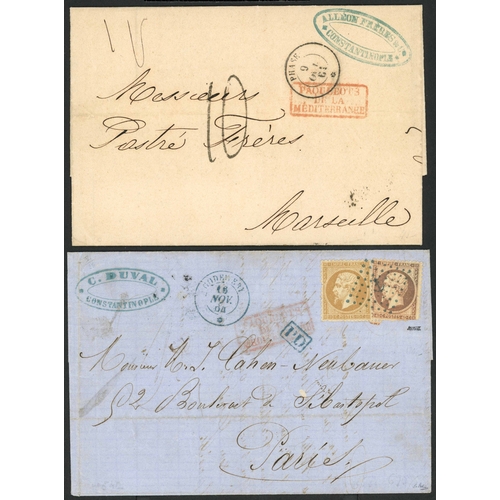 ALLEON FRERES & Cie
CONSTANTINOPLE
PHASE
PAQUEBOTS
DE LA
MÉDITERRANÉE
10
Messieurs
Pastré Frères
Marseille
C. DUVAL
CONSTANTINOPLE
16
NOV.
64
PD
Monsieur H. J. Cohen-Neubauer
52 Boulevart de Sébastopol
Paris